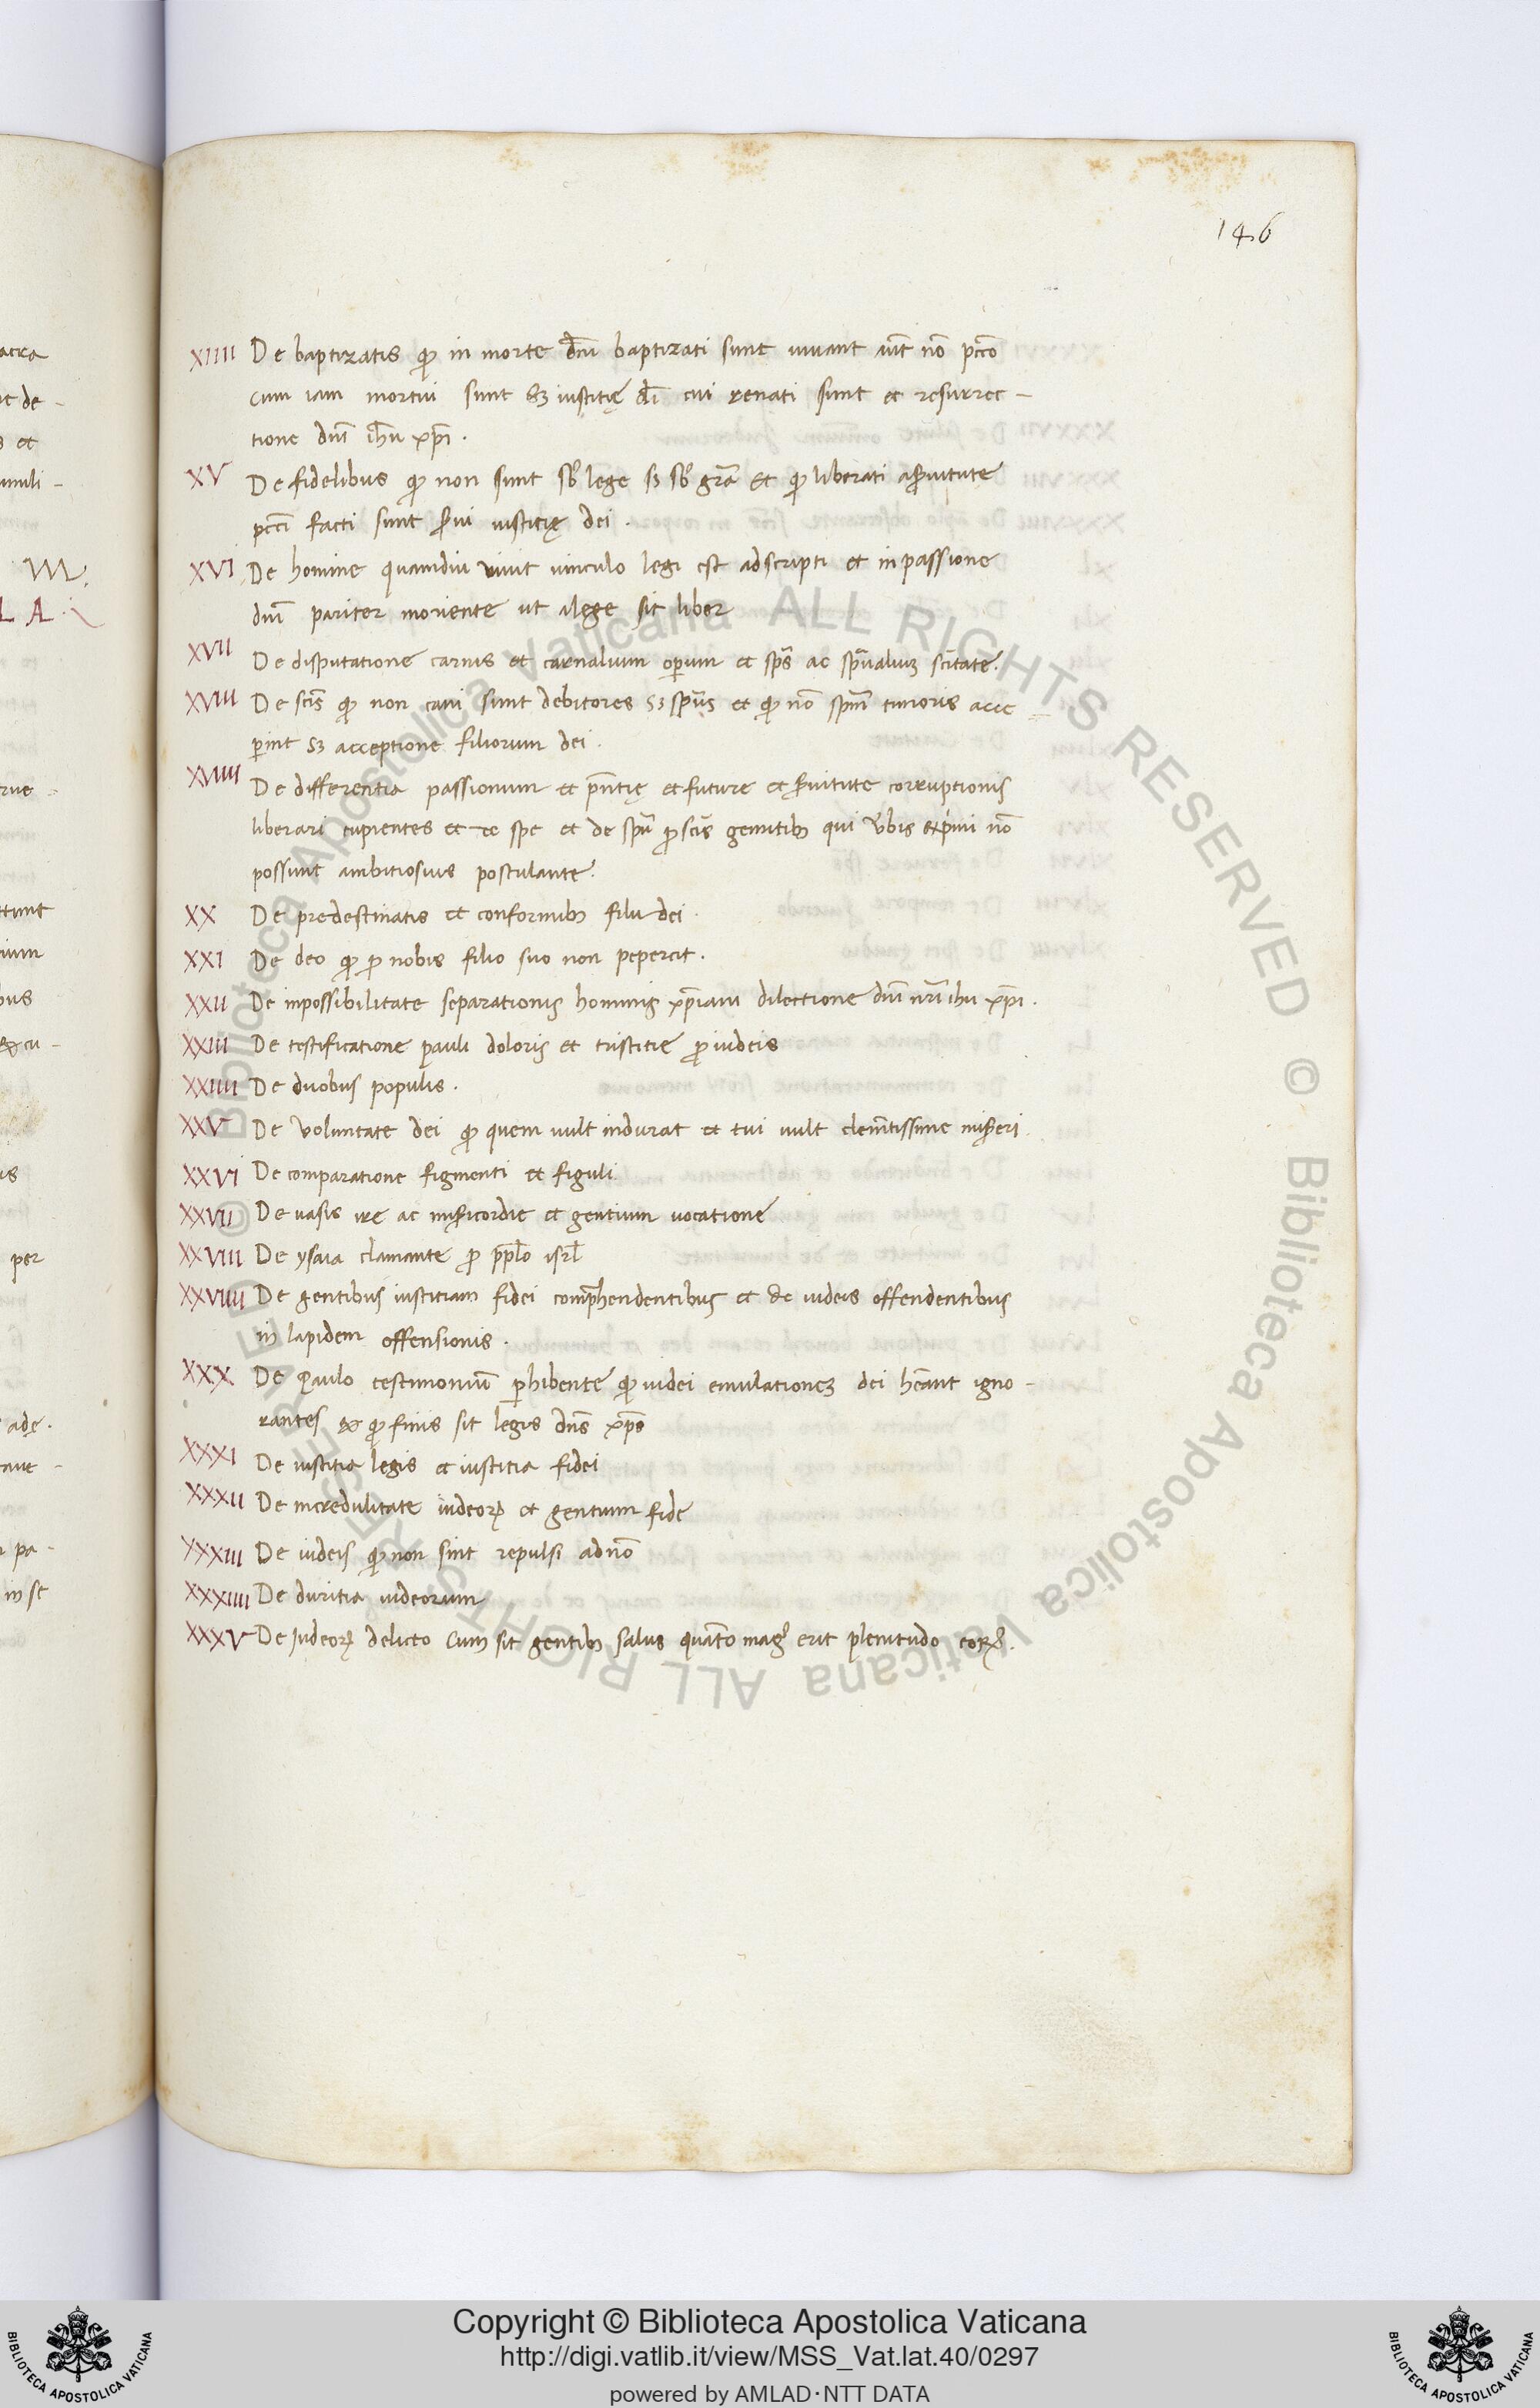 146
XIIII De baptizatis ꝙ in morte dn̄i baptizati sunt uiuant uit̄ nō pctō
cum iam mortui sunt sꝫ iustitię di̅ cui renati sunt et resurrec-
tione dn̄i ih̄u xp̄i.
XV De fidelibus ꝙ non sunt sb̄ lege sꝫ sb̄ grā et ꝙ liberati a ẜuitute
pctī facti sunt ẜui iustitię dei.
XVI De homine quamdiu uiuit uinculo legi est adscripti et in passione
dn̄i pariter moriente ut a lege sit liber
XVII De disputatione carnis et carnalium oꝑum et sp̄s ac sp̄ualiuꝫ scītate.
XVIII De scīs ꝙ non carni sunt debitores sꝫ sp̄us et ꝙ nō sp̄m timoris acce
ꝑint sꝫ acceptione filiorum dei.
XVIIII De differentia passionum et pn̄tię et future et ẜuitute corruptionis
liberari cupientes et re spe et de sp̄u ꝓ scīs gemitibꝫ qui ūbis exp̄mi nō
possunt ambitiosius postulante.
XX De predestinatis et conformibꝫ filii dei.
XXI De deo ꝙ ꝓ nobis filio suo non pepercit.
XXII De inpossibilitate separationis hominis xp̄iani dilectione dn̄i nr̄i ihu xp̄i.
XXIII De testificatione pauli doloris et tristitie ꝓ iudeis
XXIIII De duobus populis.
XXV De voluntate dei ꝙ quem uult indurat et cui uult clem̄tissime miẜeri
XXVI De comparatione figmenti et figuli
XXVII De uasis ire ac miẜicordie et gentium uocatione
XXVIII De ysaia clamante ꝓ pp̄lo isrl̄
XXVIIII De gentibus iustitiam fidei comp̄hendentibus et de iudeis offendentibus
in lapidem offensionis.
XXX De Paulo testimoniū ꝑhibente ꝙ iudei emulationeꝫ dei hēant igno-
rantes et ꝙ finis sit legis dn̄s xp̄s
XXXI De iustitia legis et iustitia fidei
XXXII De incredulitate iudeoꝝ et gentium fide
XXXIII De iudeis ꝙ non sint repulsi ad nō
XXXIIII De duritia iudeorum
XXXV De iudeoꝝ delicto cum sit gentibꝫ salus quāto mag̉ erit plenitudo eoꝝ.
Copyright © Biblioteca Apostolica Vaticana
http://digi.vatlib.it/view/MSS_Vat.lat.40/0297
powered by AMLAD·NTT DATA